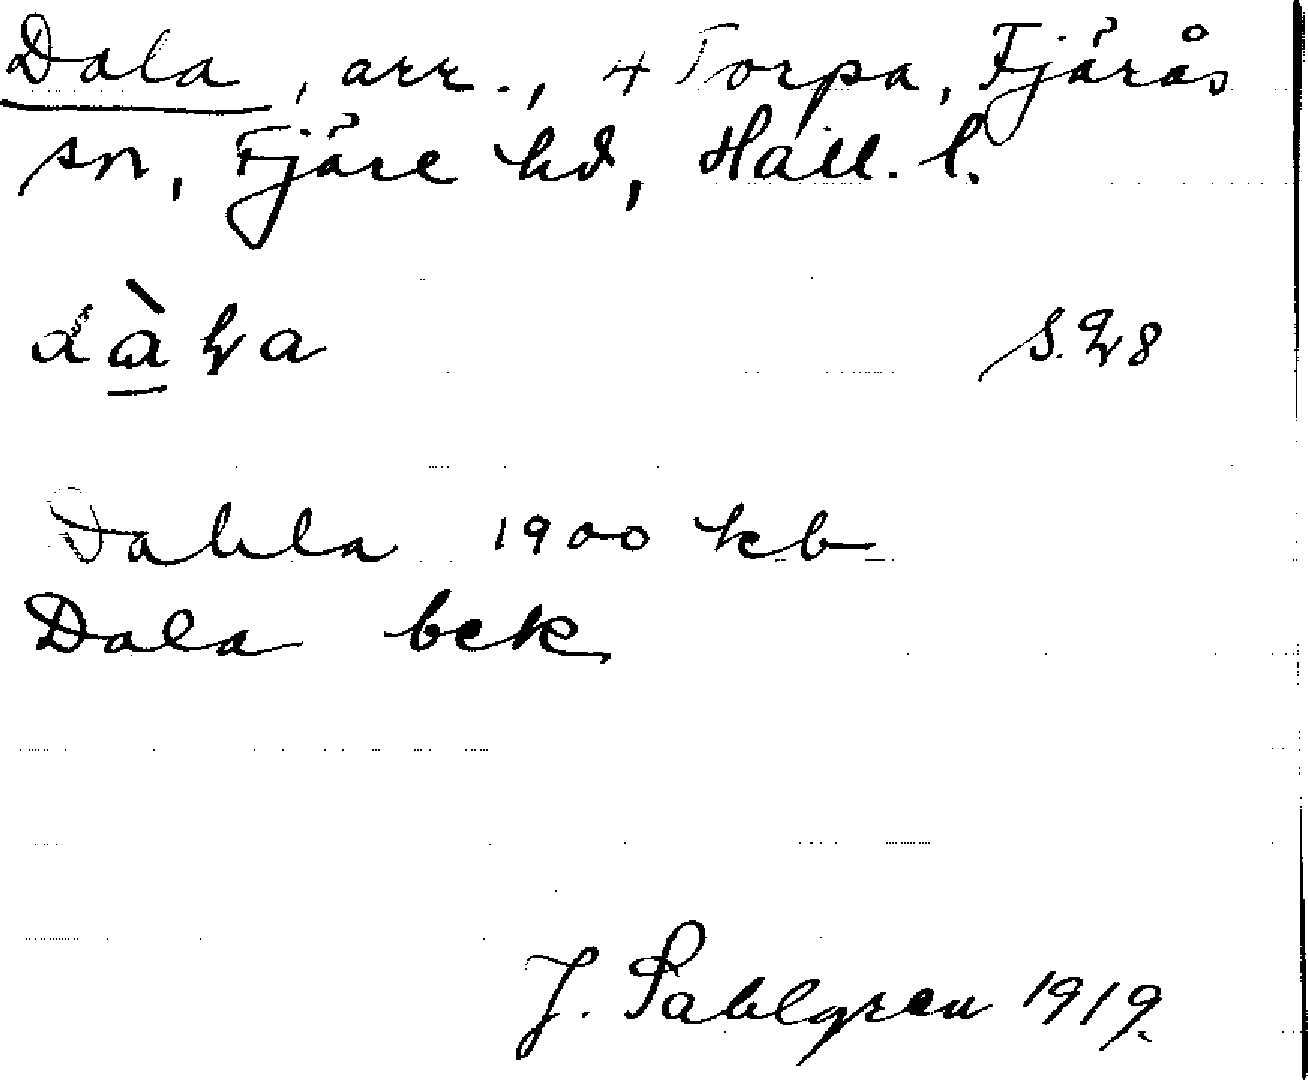 Dala, arr., + Torpa, Fjärås
sn, Fjäre hd, Hall. l.
Dahla 1900 kb
Dala bek
J. Sahlgren 1919